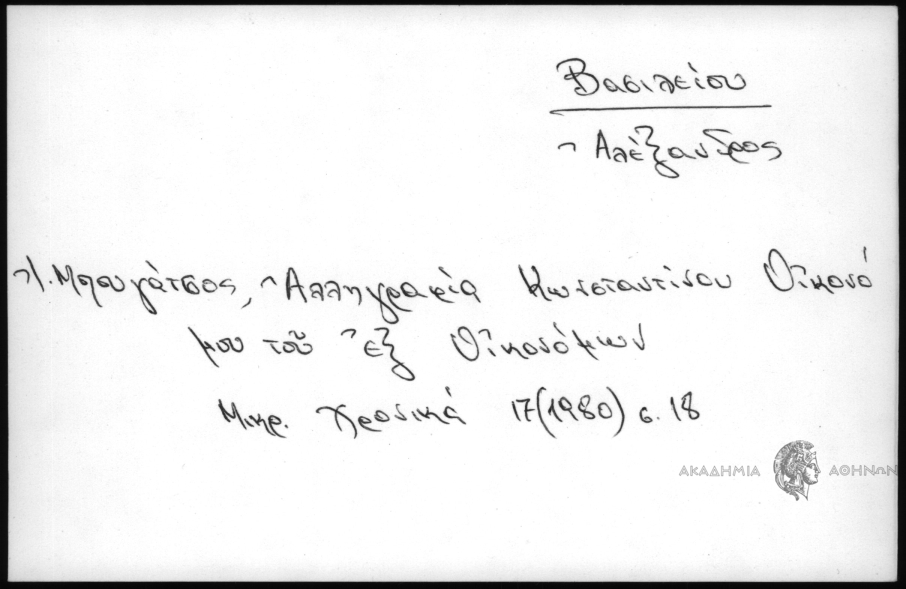 Βασιλείου
Ἀλέξανδρος
Ἰ. Μπουγάτσος, Ἀλληγραφία Κωνσταντίνου Οἰκονό
μου τοῦ ἐξ Οἰκονόμων
Μικρ. Χρονικά 17(1980) σ. 18
ΑΚΑΔΗΜΙΑ ΑΘΗΝΩΝ